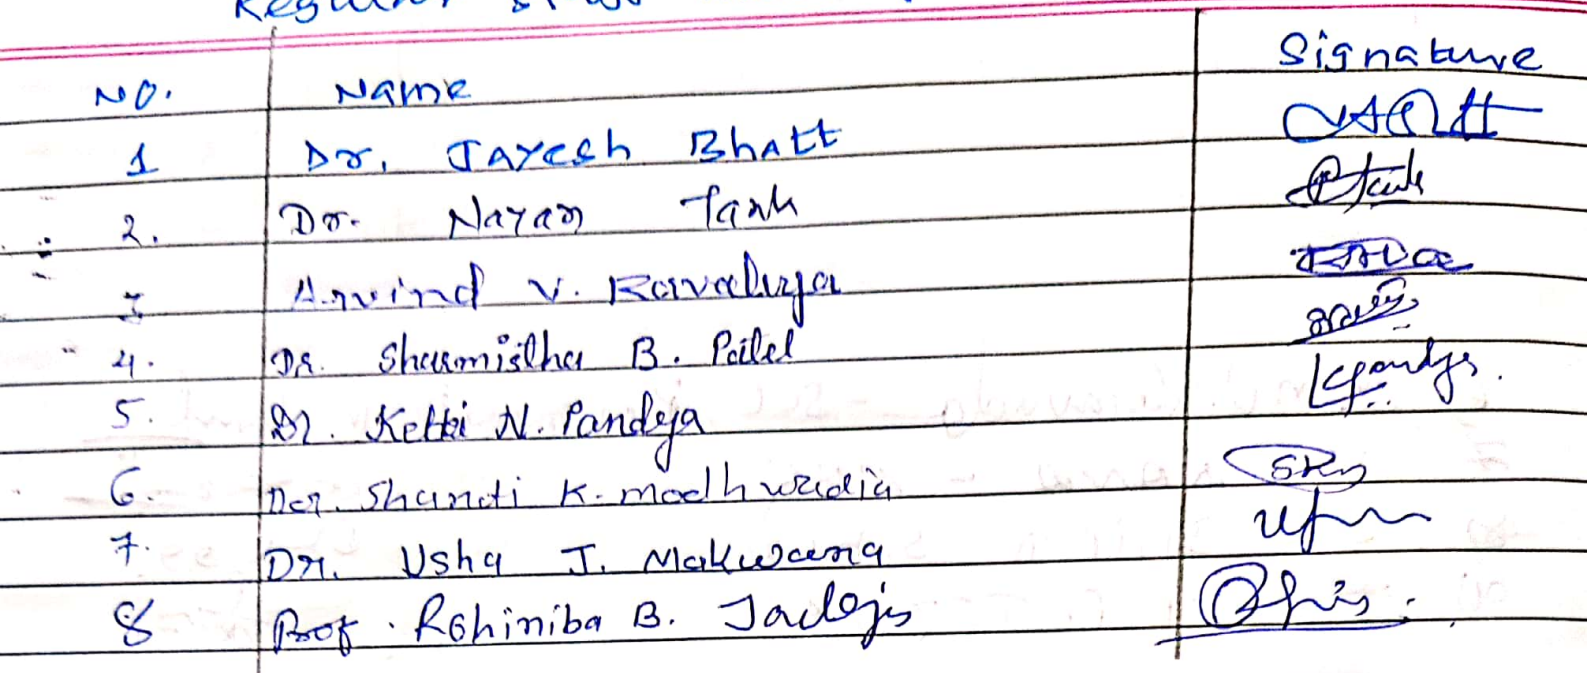 Regular
No. Name Signature
1 Dr. Jayesh Bhatt
2. Dr. Nayan Tank
3 Arvind V. Ravaliya
4. Dr. Sharmistha B. Patel
5. Dr. Ketki N. Pandya Kpandya.
6. Dr. Shanti K. modhwadia
7. Dr. Usha J. Makwana
8 Prof. Rohiniba B. Jadeja